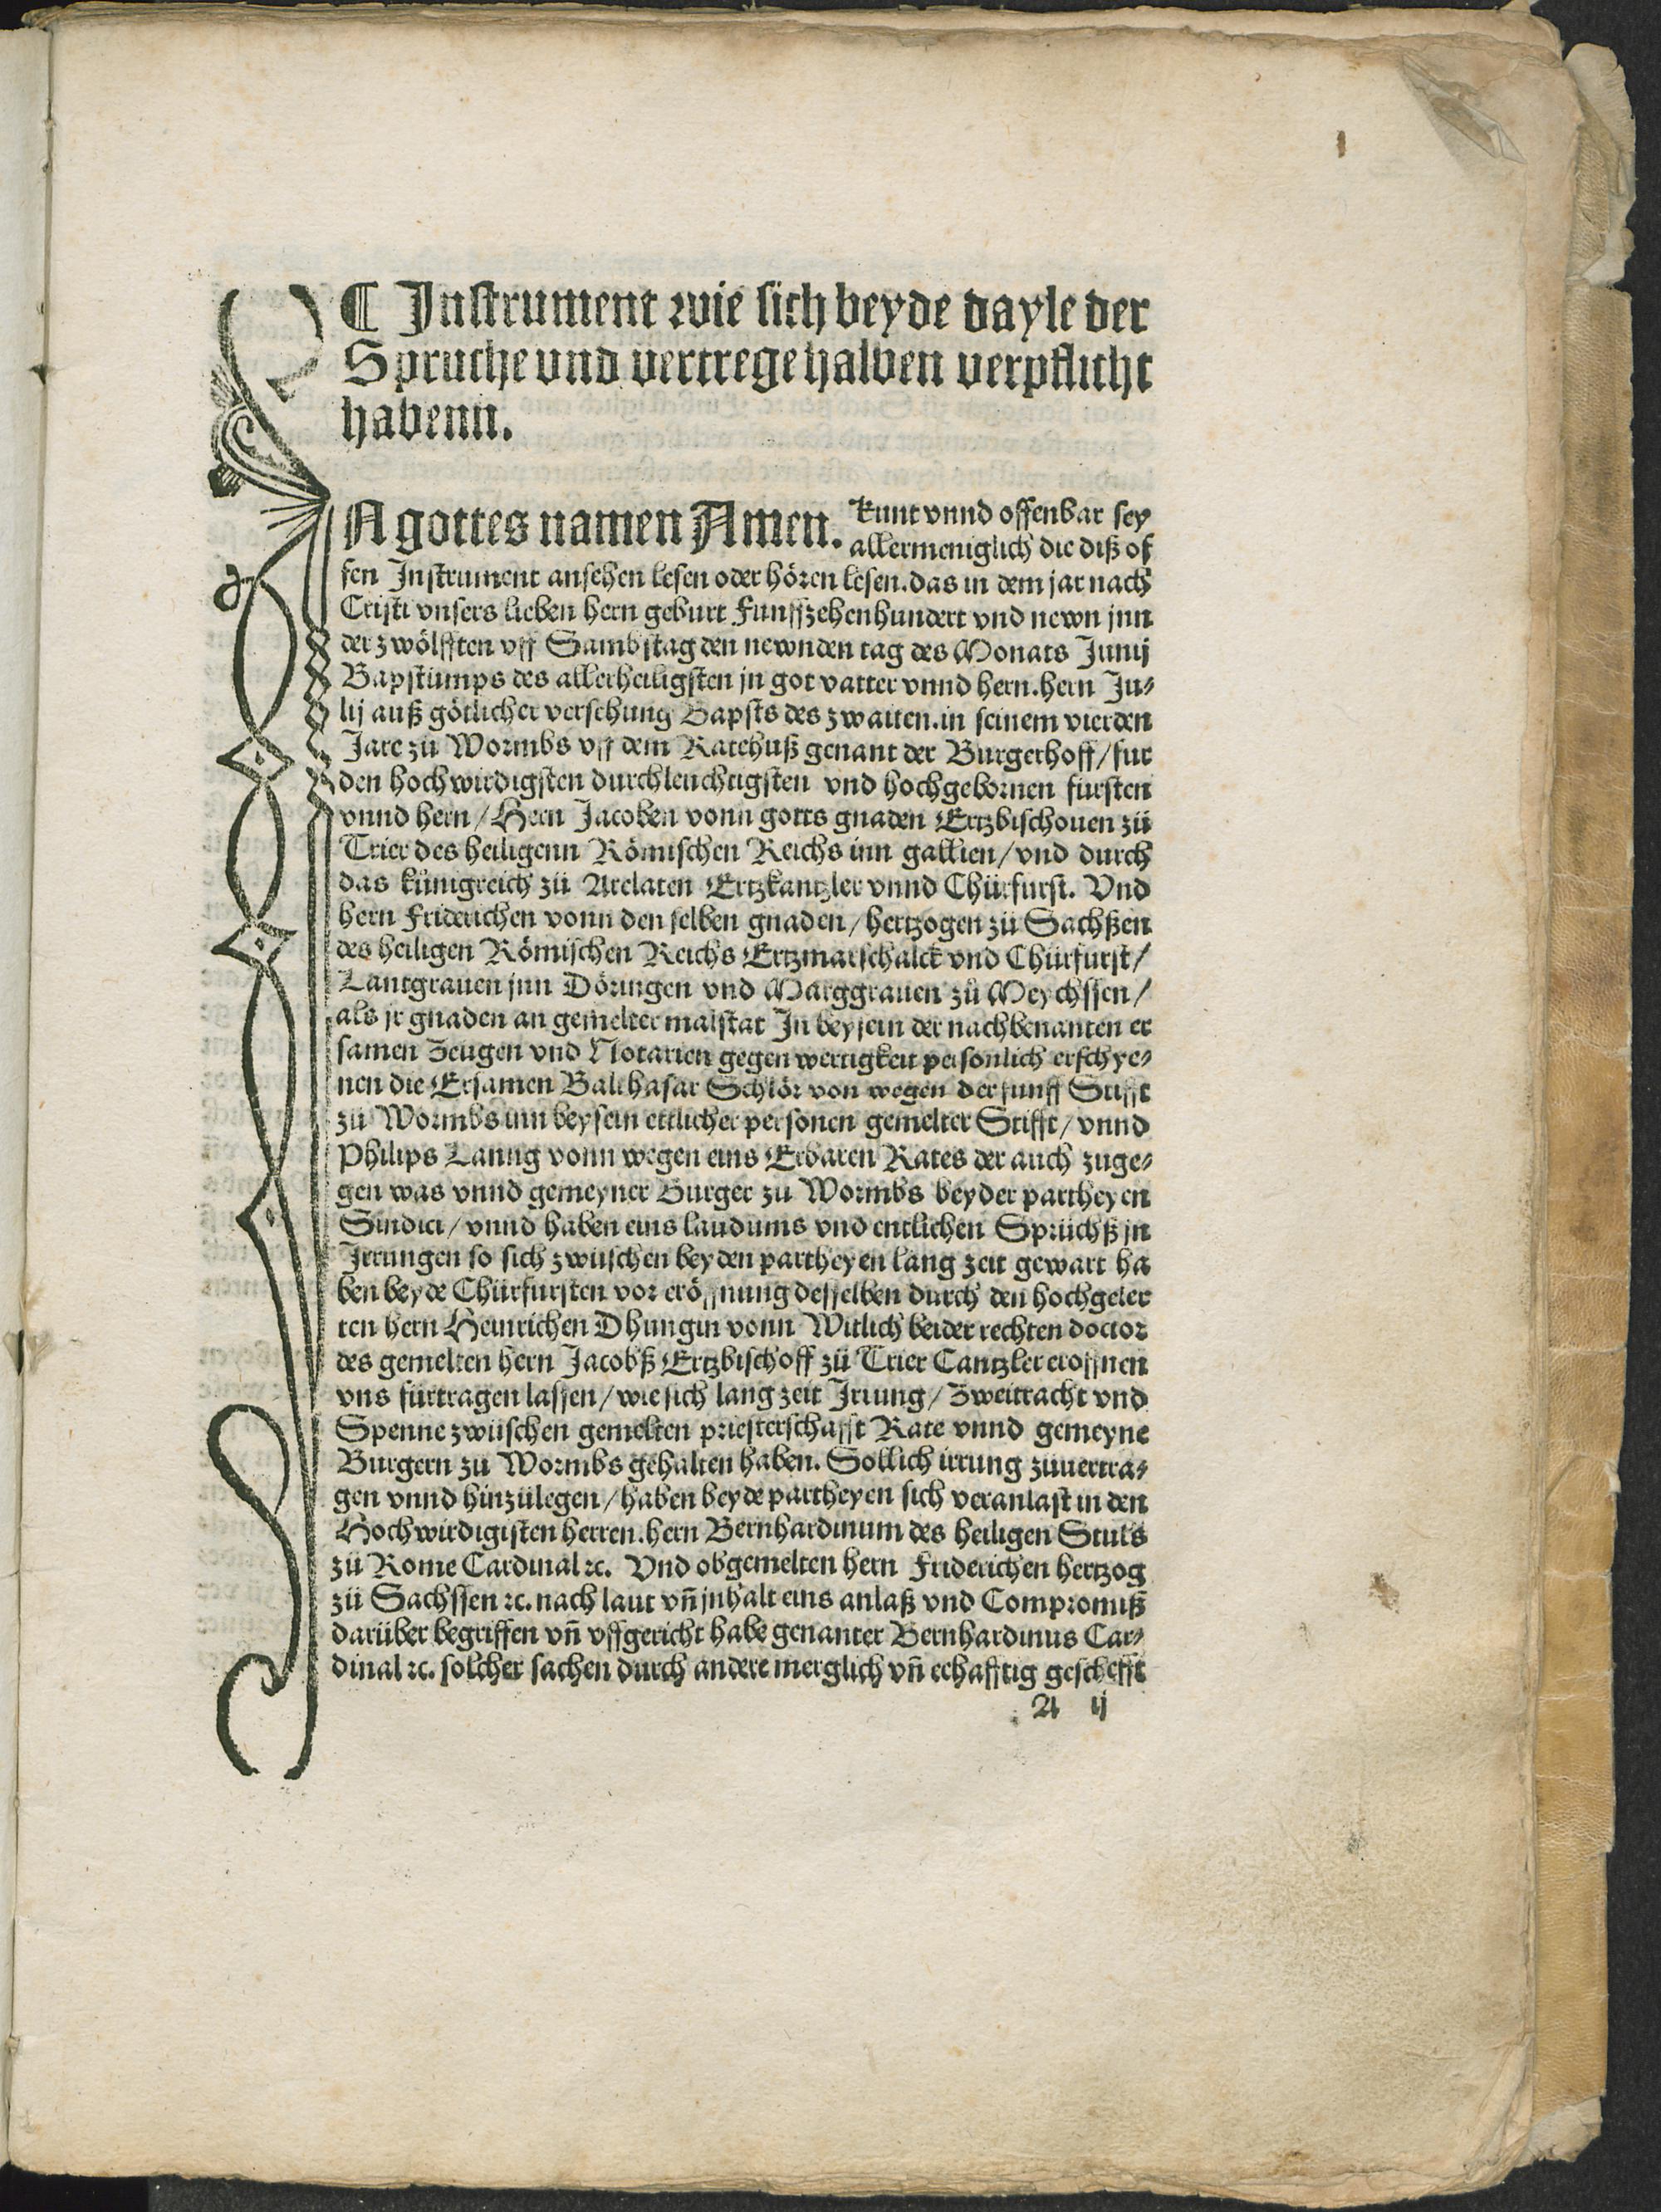 ¶ Instrument wie sich beyde dayle der
Spruche vnd vertrege halben verpflicht
habenn.
IN gottes namen Amen. Kunt vnnd offenbar sey
allermeniglich die diß of
fen Instrument ansehen lesen oder hören lesen. das in dem jar nach
Cristi vnsers lieben hern geburt Funffzehenhundert vnd newn jnn
der zwölfften vff Sambstag den newnden tag des Monats Junij
Bapstumps des allerheiligsten jn got vatter vnnd hern. hern Ju⸗
lij auß götlicher versehung Bapsts des zwaiten. in seinem vierden
Jare zů Wormbs vff dem Ratehuß genant der Burgerhoff / fur
den hochwirdigsten durchleuchtigsten vnd hochgebornen fursten
vnnd hern / Hern Jacoben vonn gotts gnaden Ertzbischouen zů
Trier des heiligenn Römischen Reichs inn gallien / vnd durch
das kůnigreich zů Arelaten Ertzkantzler vnnd Chůrfurst. Vnd
hern Friderichen vonn den selben gnaden / hertzogen zů Sachßen
des heiligen Römischen Reichs Ertzmarschalck vnd Chůrfurst /
Lantgrauen jnn Döringen vnd Marggrauen zů Meychssen /
als jr gnaden an gemelter malstat In beysein der nachbenanten er
samen Zeugen vnd Notarien gegenwertigkeit personlich erschye⸗
nen die Ersamen Balthasar Schlör von wegen der funff Stifft
zů Wormbs inn beysein ettlicher personen gemelter Stifft / vnnd
Philips Lanng vonn wegen eins Erbaren Rates der auch zuge⸗
gen was vnnd gemeyner Burger zu Wormbs beyder partheyen
Sindici / vnnd haben eins laudums vnd entlichen Sprůchß jn
Irrungen so sich zwůschen beyden partheyen lang zeit gewart ha
ben beyde Chůrfursten vor eröffnung desselben durch den hochgeler
ten hern Heinrichen Dhungin vonn Witlich beider rechten doctor
des gemelten hern Jacobß Ertzbischoff zů Trier Cantzler eroffnen
vns fůrtragen lassen / wie sich lang zeit Irrung / Zweitracht vnd
Spenne zwůschen gemelten priesterschafft Rate vnnd gemeyne
Burgern zu Wormbs gehalten haben. Sollich irrung zůuertra⸗
gen vnnd hinzůlegen / haben beyde partheyen sich veranlast in den
Hochwirdigisten herren. hern Bernhardinum des heiligen Stuls
zů Rome Cardinal ꝛc. Vnd obgemelten hern Friderichen hertzog
zů Sachssen ꝛc. nach laut vñ jnhalt eins anlaß vnd Compromiß
darůber begriffen vñ vffgericht habe genanter Bernhardinus Car⸗
dinal ꝛc. solcher sachen durch andere merglich vñ eehafftig geschefft
A ij